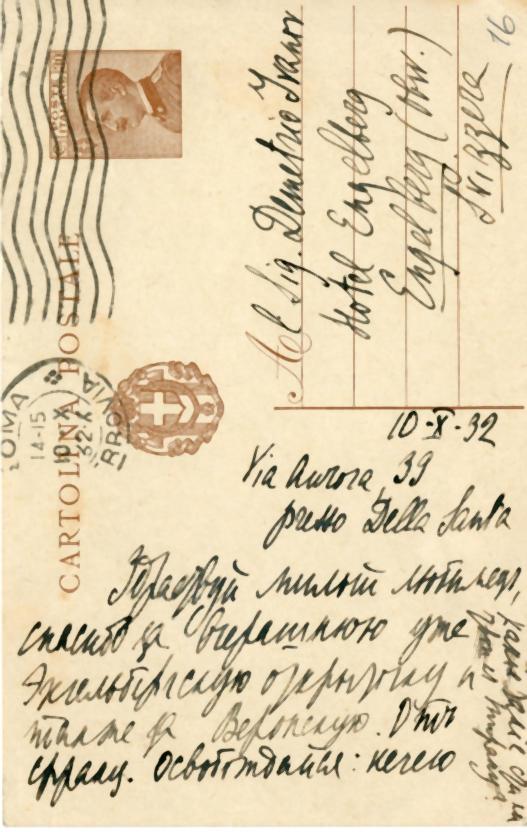 POSTE ITALIANE
CARTOLINA POSTALE
ROMA FERROVIA
14-15
10 X
32 X
16
Al Sig. Demetrio Ivanov
Hotel Engelberg
Engelberg (Obw.)
Svizzera
10-X-32
Via Aurora, 39
presso Della Santa
Здравствуй милый
спасибо за вчерашнюю уже
Энгельбергскую открытку и
также за Веронскую.
сразу. Освобождайся: нечего